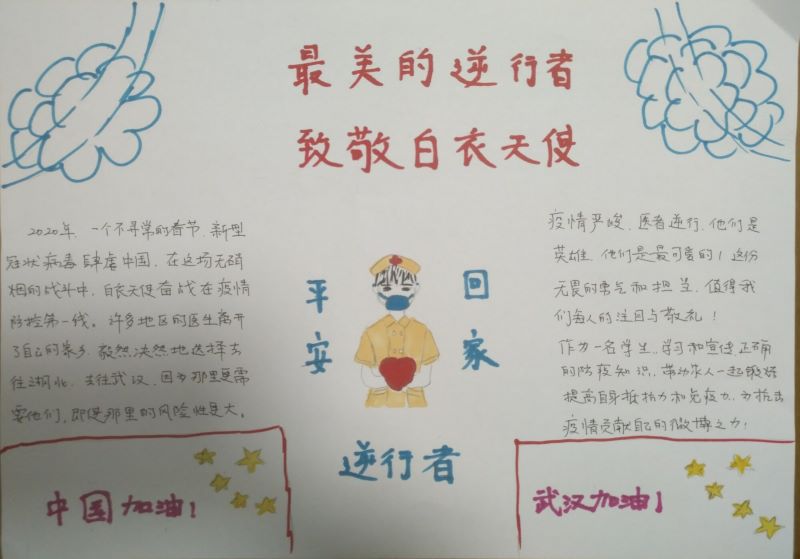 最美的逆行者
致敬白衣天使
2020年、一个不寻常的春节、新型
冠状病毒肆虐中国、在这场无硝
烟的战斗中、白衣天使奋战在疫情
防控第一线。许多地区的医生离开
了自己的家乡、毅然决然地选择去
往湖北、去往武汉、因为那里更需
要他们、即使那里的风险性更大。
平安
回家
逆行者
疫情严峻、医者逆行、他们是
英雄、他们是最可爱的！这份
无畏的勇气和担当、值得我
们每人的注目与敬礼！
作为一名学生、学习和宣传正确
的防疫知识、带动家人一起锻炼
提高自身抵抗力和免疫力、为抗击
疫情贡献自己的微博之力！
中国加油！
武汉加油！